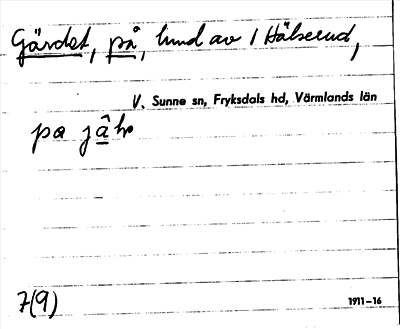 Gärdet, på, lund av 1 Hälserud,
V. Sunne sn, Fryksdals hd, Värmlands län
pa
7(9)
1911–16